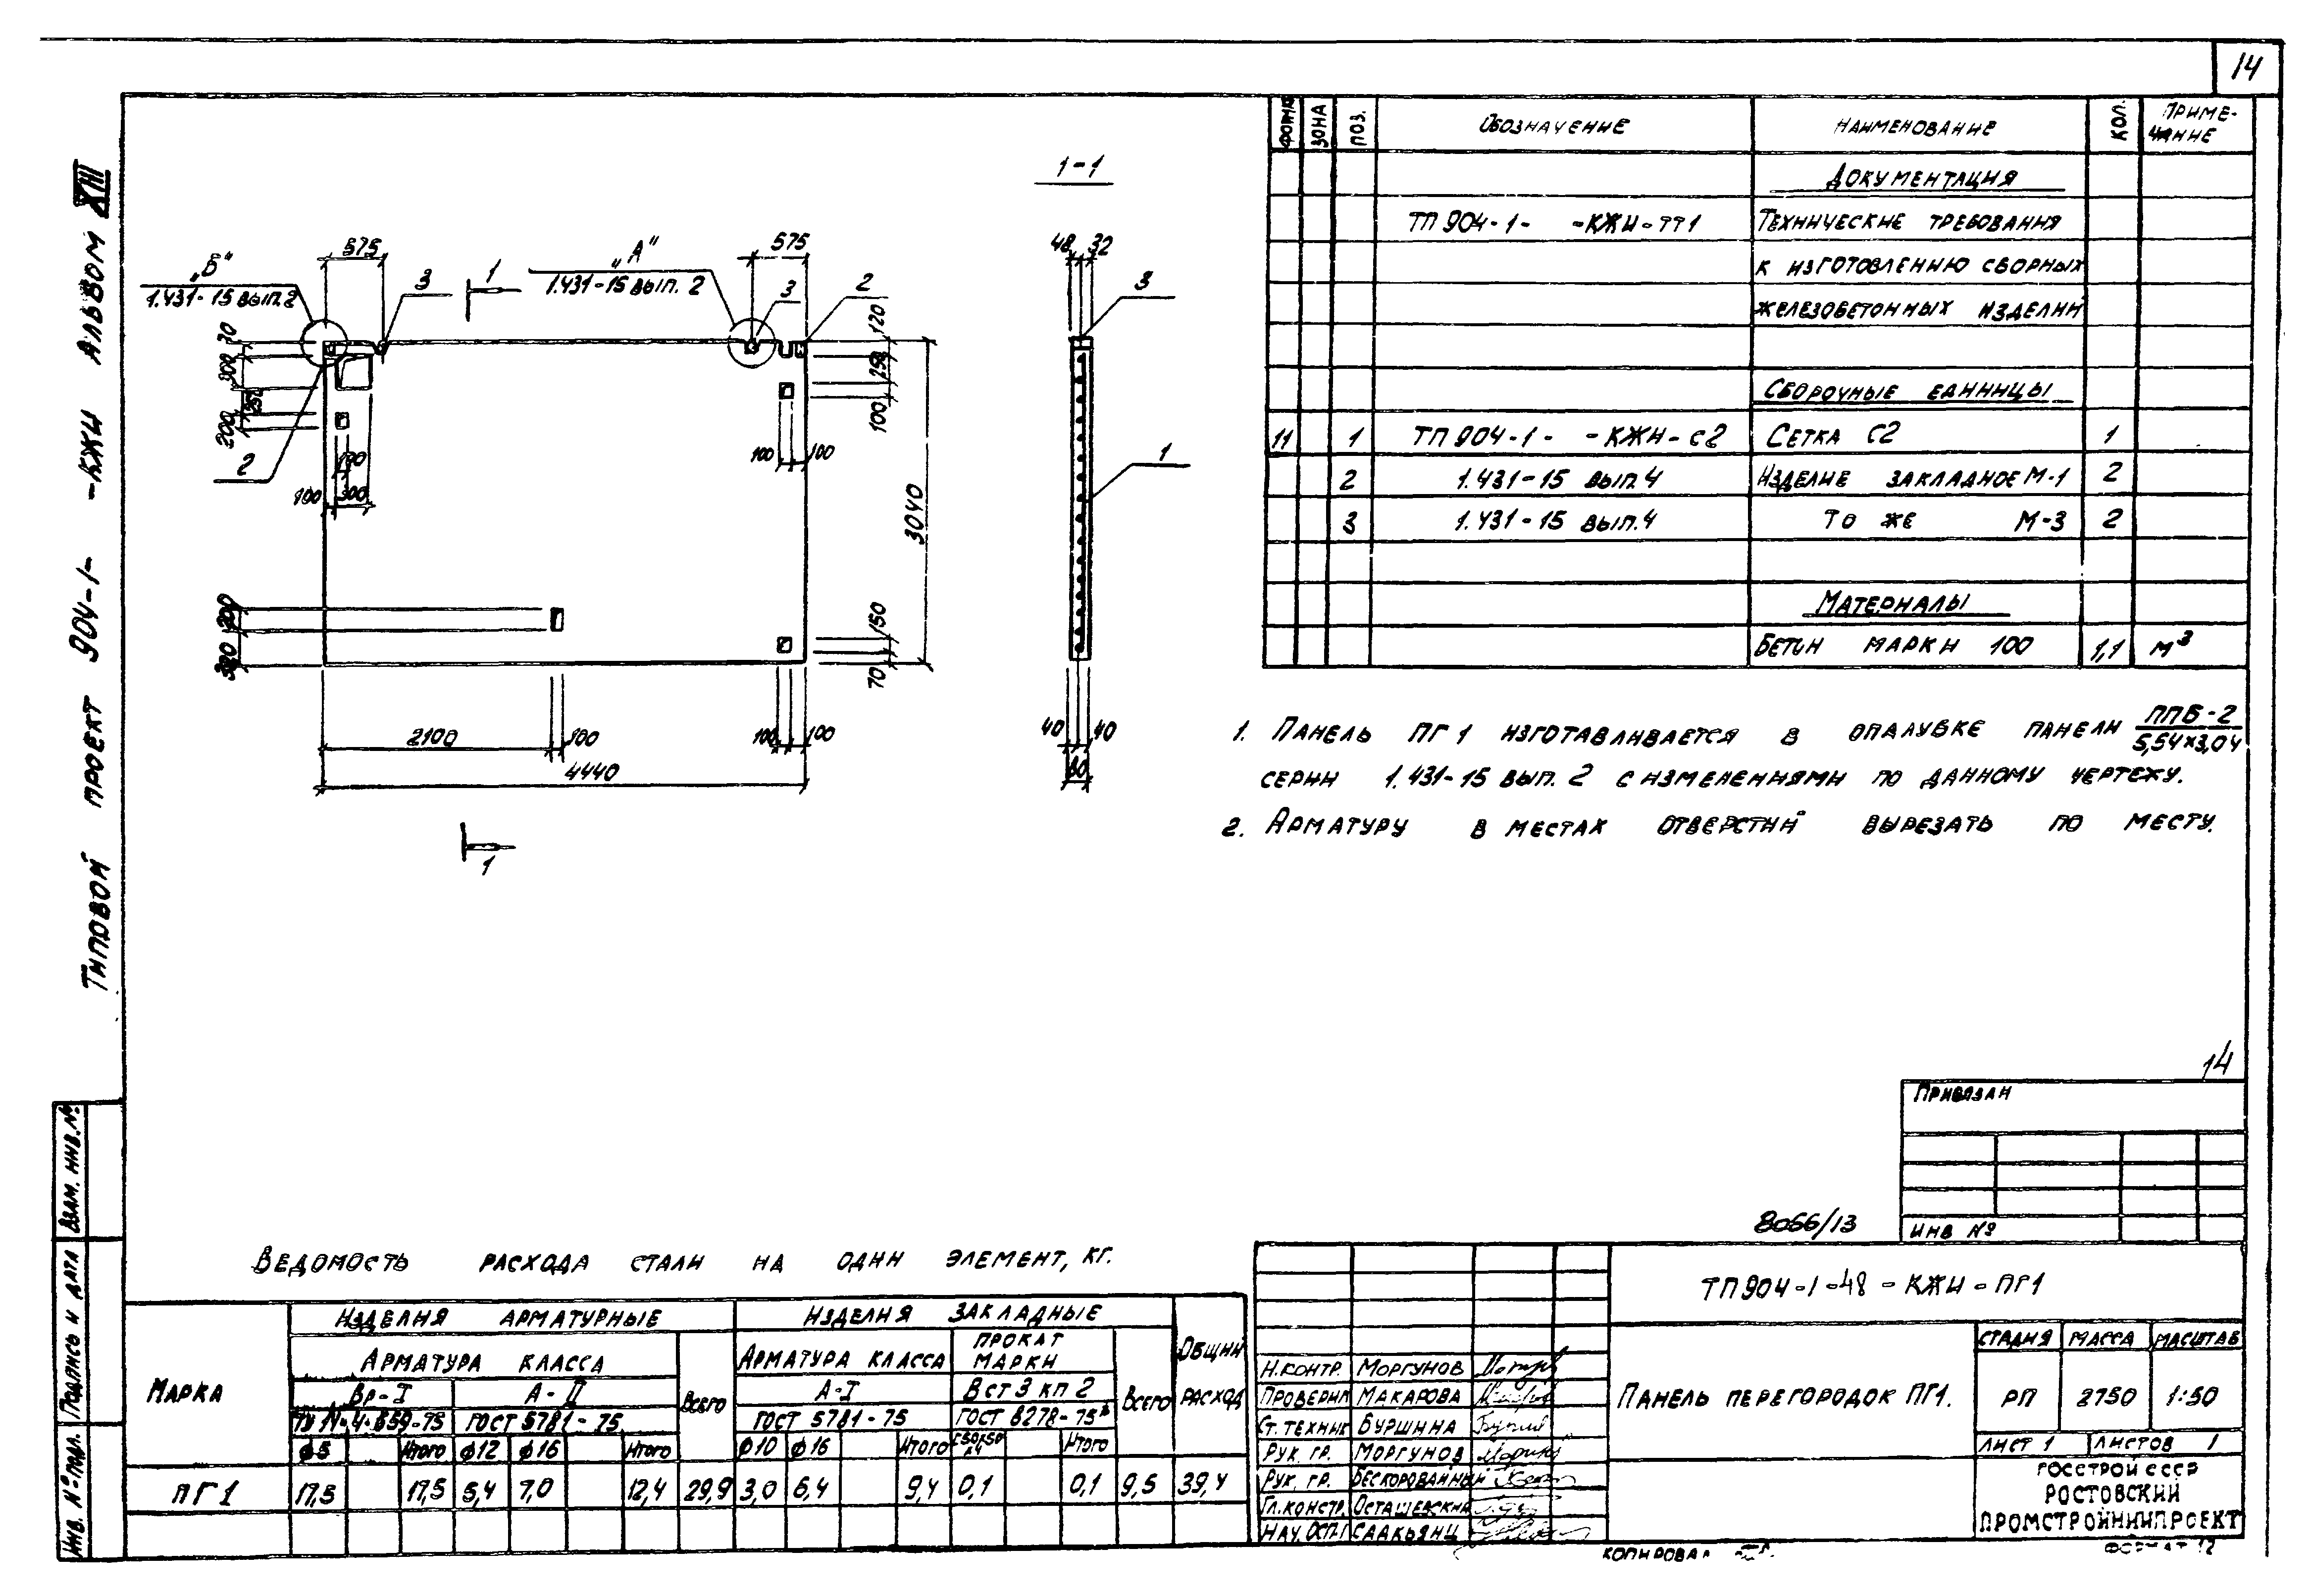 14
ТИПОВОЙ ПРОЕКТ 904-1- -КЖИ АЛЬБОМ XIII
"Б"
1.431-15 вып. 2
575
3
1
"А"
1.431-15 вып. 2
575
3
2
120
250
100
3040
150
70
30
300
250
200
2
100
300
100
100
200
2100
100
100
100
4440
1
1-1
48
32
3
1
40
40
80
ФОРМАТ
ЗОНА
ПОЗ.
ОБОЗНАЧЕНИЕ
НАИМЕНОВАНИЕ
КОЛ.
ПРИМЕ-
ЧАНИЕ
ДОКУМЕНТАЦИЯ
ТП 904-1- -КЖИ-ТТ1 ТЕХНИЧЕСКИЕ ТРЕБОВАНИЯ
К ИЗГОТОВЛЕНИЮ СБОРНЫХ
ЖЕЛЕЗОБЕТОННЫХ ИЗДЕЛИЙ
СБОРОЧНЫЕ ЕДИНИЦЫ
11 1 ТП 904-1- -КЖИ-С2 СЕТКА С2 1
2 1.431-15 вып.4 ИЗДЕЛИЕ ЗАКЛАДНОЕ М-1 2
3 1.431-15 вып.4 ТО ЖЕ М-3 2
МАТЕРИАЛЫ
БЕТОН МАРКИ 100 1,1 М3
1. ПАНЕЛЬ ПГ1 ИЗГОТАВЛИВАЕТСЯ В ОПАЛУБКЕ ПАНЕЛИ ППБ-2
5,54×3,04
СЕРИИ 1.431-15 вып. 2 С ИЗМЕНЕНИЯМИ ПО ДАННОМУ ЧЕРТЕЖУ.
2. АРМАТУРУ В МЕСТАХ ОТВЕРСТИЙ ВЫРЕЗАТЬ ПО МЕСТУ.
14
ПРИВЯЗАН
ИНВ №
8066/13
ВЕДОМОСТЬ РАСХОДА СТАЛИ НА ОДИН ЭЛЕМЕНТ, КГ.
МАРКА
ИЗДЕЛИЯ АРМАТУРНЫЕ
ИЗДЕЛИЯ ЗАКЛАДНЫЕ
ОБЩИЙ
РАСХОД
АРМАТУРА КЛАССА
ВСЕГО
АРМАТУРА КЛАССА
ПРОКАТ
МАРКИ
ВСЕГО
Вр-I
А-II
А-I
Вст 3 кп 2
ТУ 14-4-659-75 ГОСТ 5781-75 ГОСТ 5781-75 ГОСТ 8278-75*
ф5 ИТОГО ф12 ф16 ИТОГО ф10 ф16 ИТОГО ИТОГО
ПГ1 17,5 17,5 5,4 7,0 12,4 29,9 3,0 6,4 9,4 0,1 0,1 9,5 39,4
ТП904-1-48-КЖИ-ПГ1
Н.КОНТР. МОРГУНОВ
ПРОВЕРИЛ МАКАРОВА
СТ.ТЕХНИК БУРШИНА
РУК. ГР. МОРГУНОВ
РУК. ГР. БЕСКОРОВАЙНЫЙ
ГЛ.КОНСТР. ОСТАШЕВСКИЙ
НАЧ.ОСП-1 СААКЬЯНЦ
ПАНЕЛЬ ПЕРЕГОРОДОК ПГ1.
СТАДИЯ МАССА МАСШТАБ
РП 2750 1:50
ЛИСТ 1 ЛИСТОВ 1
ГОССТРОЙ СССР
РОСТОВСКИЙ
ПРОМСТРОЙНИИПРОЕКТ
КОПИРОВАЛ
ФОРМАТ 12
ИНВ. № ПОДЛ. ПОДПИСЬ И ДАТА ВЗАМ. ИНВ. №